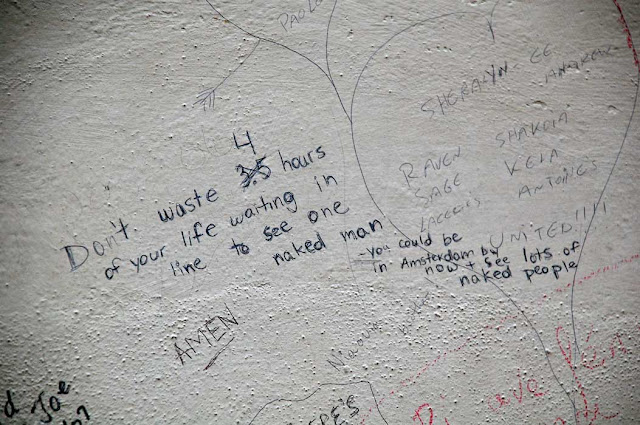 PAOLO
SHERALYN. CE
4
Don't waste 3.5 hours
of your life waiting in
line to see one
naked man
RAVEN SHAKOIA
SAGE KEIA
ANTONIES
UNITED!!!!
-you could be
in Amsterdam by
now + see lots of
naked people
AMEN
Joe